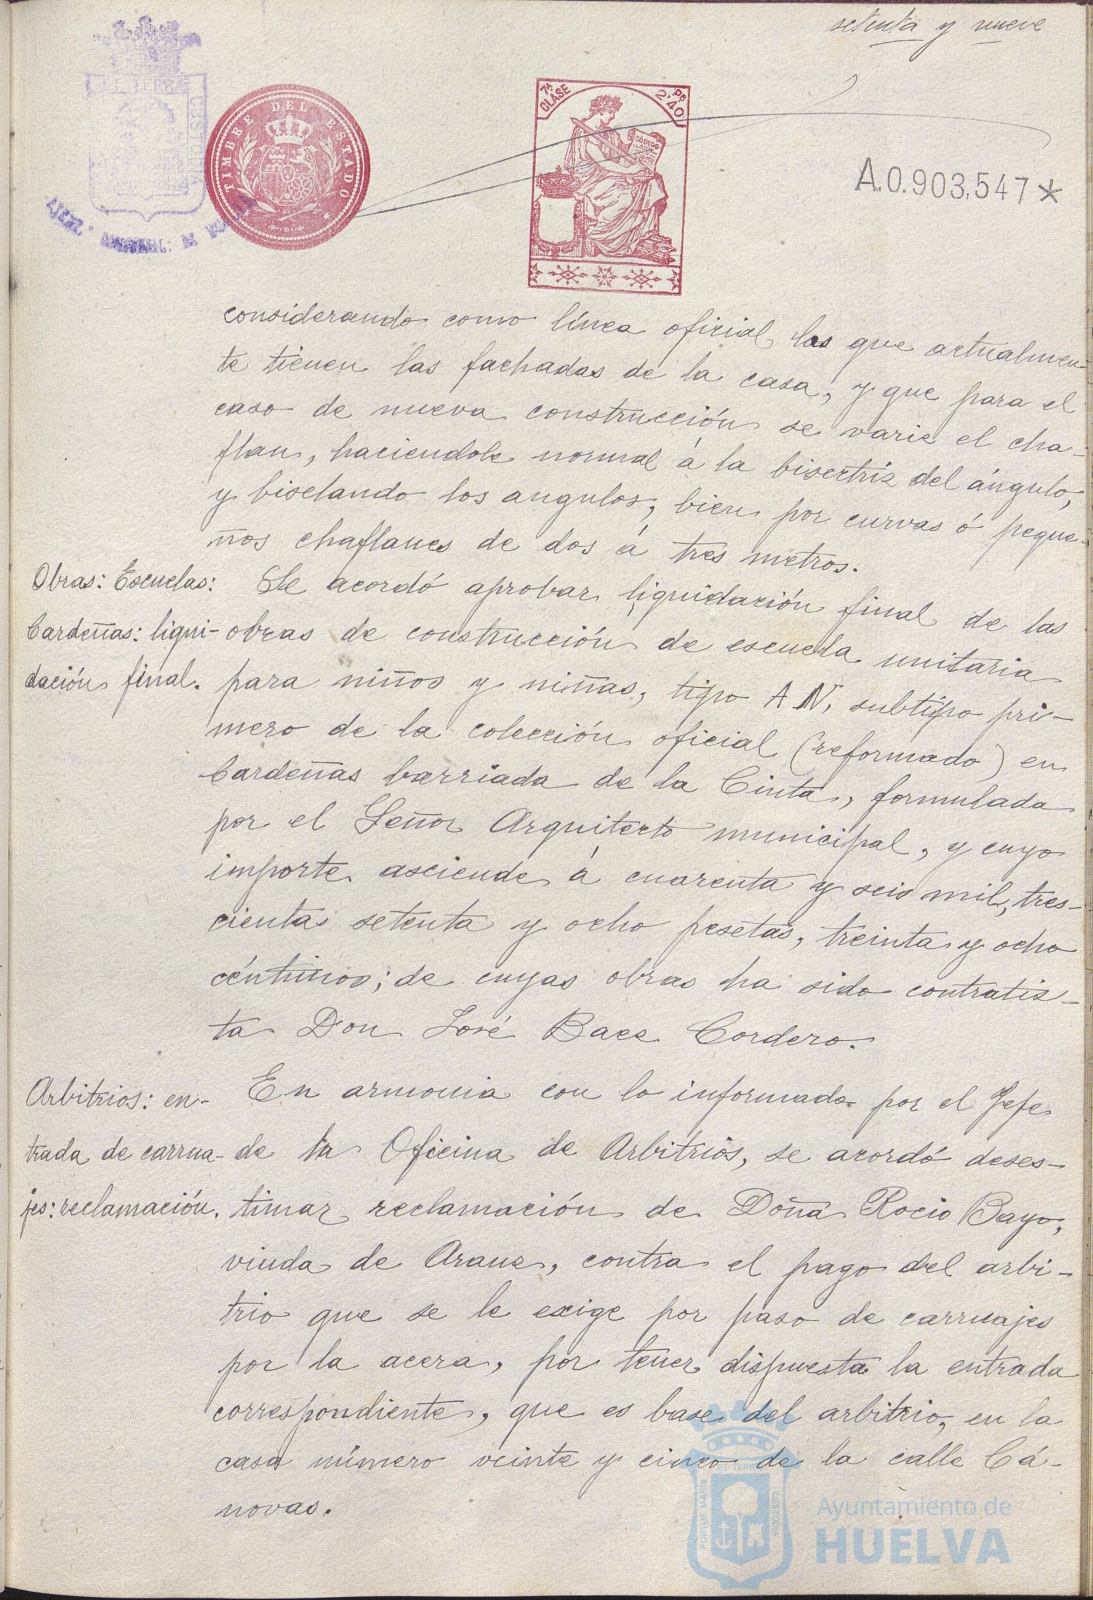 setenta y nueve
TIMBRE DEL ESTADO
7ª CLASE
Pts 2'40
A.0.903,547*
considerando como línea oficial las que actualmen-
te tienen las fachadas de la casa, y que para el
caso de nueva construcción se varie el cha-
flan, haciendole normal á la bisectriz del ángulo,
y biselando los angulos, bien por curvas ó peque-
ños chaflanes de dos á tres metros.
Obras: Escuelas: Se acordó aprobar liquidación final de las
Cardeñas: liqui- obras de construcción de escuela unitaria
dación final. para niños y niñas, tipo A N, subtipo pri-
mero de la colección oficial (reformado) en
Cardeñas barriada de la Cinta, formulada
por el Señor Arquitecto municipal, y cuyo
importe asciende á cuarenta y seis mil, tres-
cientas setenta y ocho pesetas, treinta y ocho
céntimos; de cuyas obras ha sido contratis-
ta Don José Baes Cordero.
Arbitrios: en- En armonia con lo informado por el Jefe
trada de carrua- de la Oficina de Arbitrios, se acordó deses-
jes: reclamación. timar reclamación de Doña Rocio Bayo,
viuda de Arauz, contra el pago del arbi-
trio que se le exige por paso de carruajes
por la acera, por tener dispuesta la entrada
correspondiente, que es base del arbitrio, en la
casa número veinte y cinco de la calle Cá-
novas.
Ayuntamiento de
HUELVA